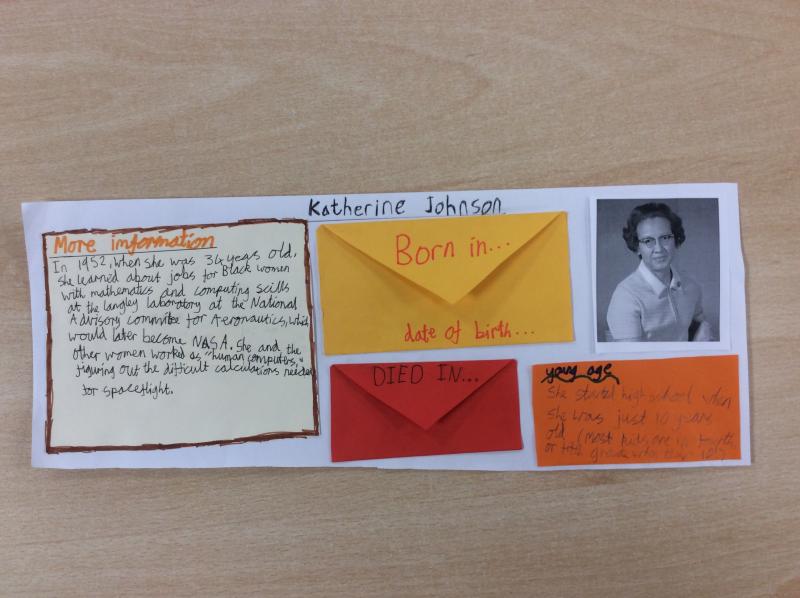 Katherine Johnson
More information
In 1952, when she was 34 years old,
she learned about jobs for Black women
with mathematics and computing scills
at the langley laboratory at the National
Advisory commitee for Aeronautics, which
would later become NASA. She and the
other women worked as "human computers,"
figuring out the difficult calculations needed
for spaceflight.
Born in...
date of birth...
DIED IN...
young age
She started high school when
she was just 10 years
old (most kids are in fourth
or